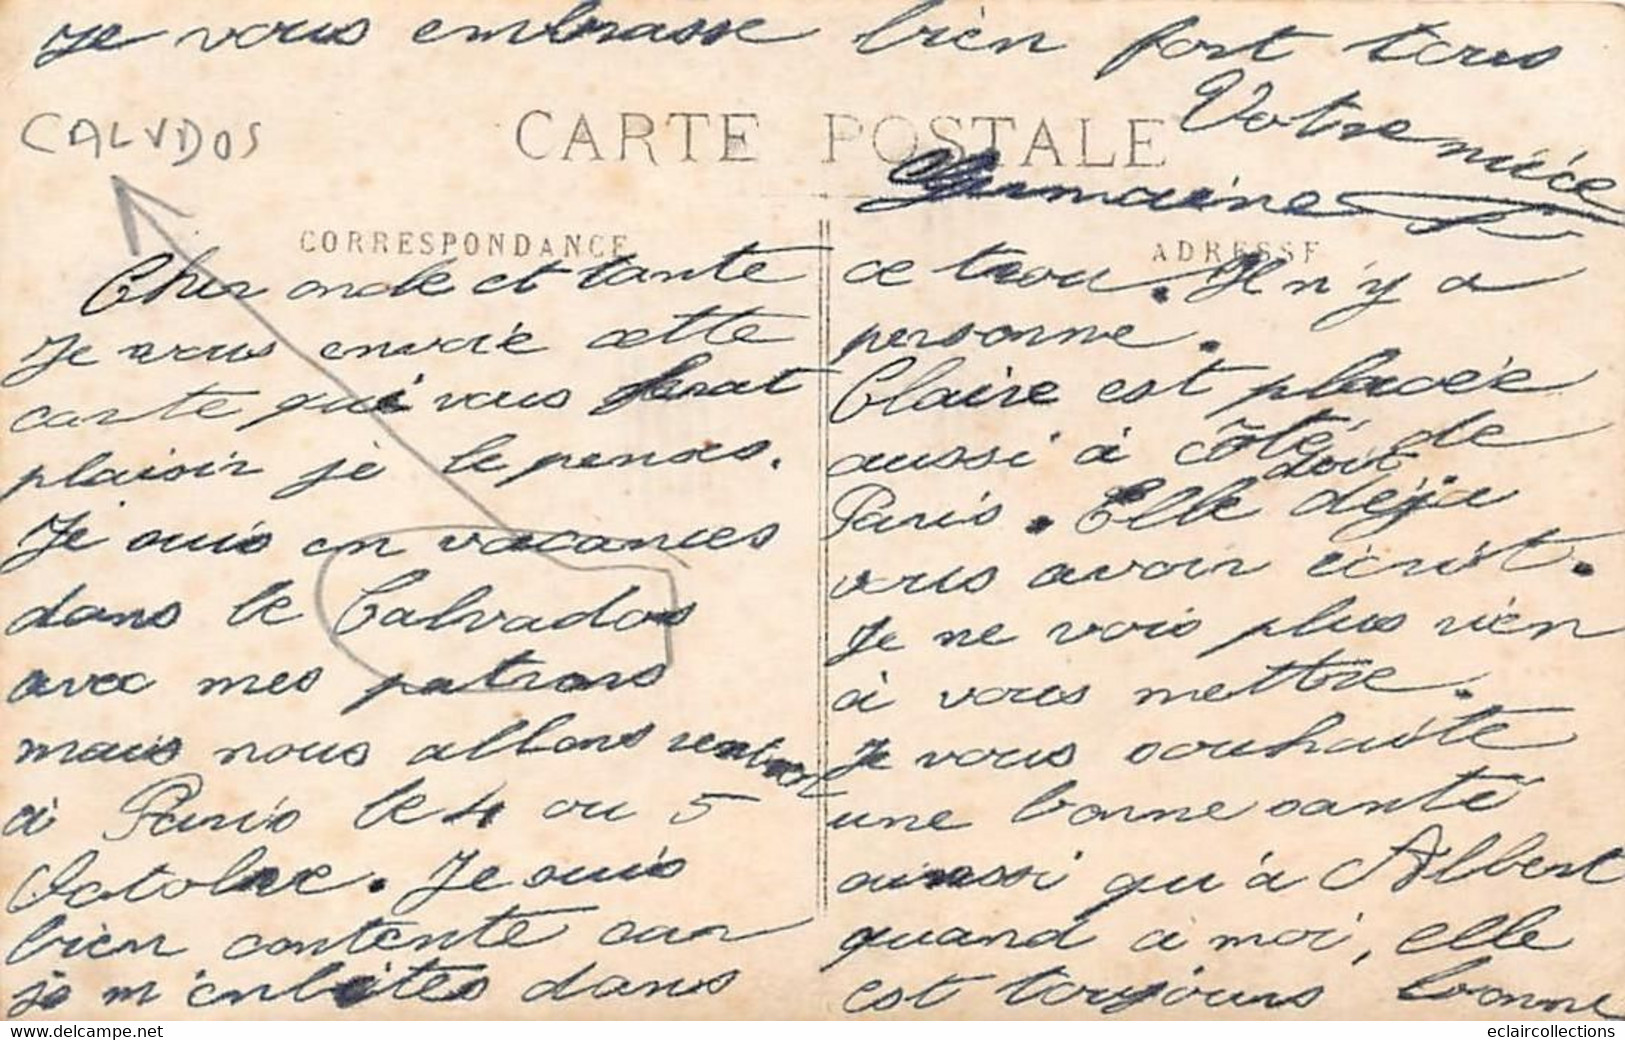 je vous embrasse bien fort tous
Votre nièce
Germaine
CALVDOS
CARTE POSTALE
CORRESPONDANCE
ADRESSE
Cher oncle et tante
Je vous envoie cette
carte qui vous ferat
plaisir je le penses.
Je suis en vacances
dans le Calvados
avec mes patrons
mais nous allons rentrer
à Paris le 4 ou 5
Octobre. Je suis
bien contente car
je m'enbêtes dans
ce trou. Il n'y a
personne.
Claire est placée
aussi à côté de
Paris. Elle doit déja
vous avoir écrit.
Je ne vois plus rien
à vous mettre.
Je vous souhaite
une bonne santé
ainssi qu'à Albert
quand à moi, elle
est toujours bonne
eclaircollections